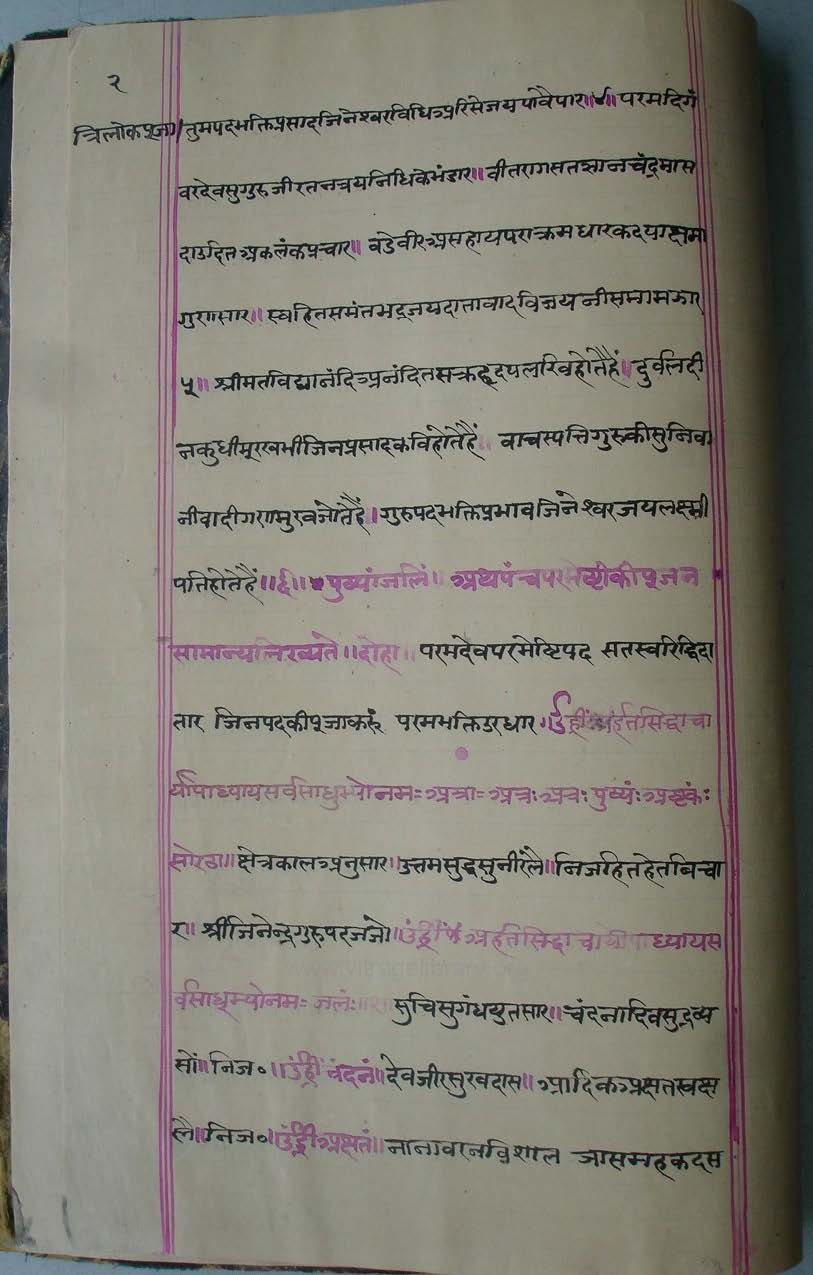 २
त्रिलोकपूजा/तुमपदभक्तिप्रसादजिनेश्वरविधिअरिसेजयपावैपार॥४॥परमदिगं
वरदेवसुगुरुजीरतनत्रयनिधिकेभंडार॥वीतरागसतज्ञानचंद्रमास
दाउदितअकलंकप्रचार॥ वडेवीरअसहायपराक्रमधारकदयाक्षमा
गुणसार॥स्वहितसमंतभद्रजयदातावादविजयनीसमामझार
५॥ श्रीमतविद्यानंदिअनंदित हृदयलखिहोतेहैं॥दुर्वलदी
नकुधीमूरखभीजिनप्रसादकविहोतेहैं॥ वाचस्पतिगुरुकीसुनिवा
नीवादीगणमुखजोतेहैं॥गुरुपदभक्तिप्रभावजिनेश्वरजयलक्ष्मी
पतिहोतेहैं॥६॥पुष्पांजलिं॥ अथपंचपरमेष्टीकीपूजन
सामान्यलिख्यते॥दोहा॥ परमदेवपरमेष्टिपद सतस्वरिद्धिदा
तार जिनपदकीपूजाकरूं परमभक्तिउरधार।उंह्रीं अर्हतसिद्धाचा
र्योपाध्यायसर्वसाधुभ्योनमः अत्राः अत्रः अत्रः पुष्पंः अष्टकंः
सोरठा॥क्षेत्रकालअनुसार।उत्तमसुद्धसुनीरलै॥निजहितहेतविचा
र॥ श्रीजिनेन्द्रगुरुपरजजो॥उंह्रीं अर्हतसिद्धाचार्योपाध्यायस
र्वसाधुभ्योनमः जलंः॥ सुचिसुगंधयुतसार॥चंदनादिवसुद्रव्य
सों॥निज०॥उंह्रीं चंदनं॥देवजीरसुखदास॥आदिकअक्षतस्वक्ष
लै॥निज०॥उंह्रीं अक्षतं॥नानावरनविशाल जासमहकदस